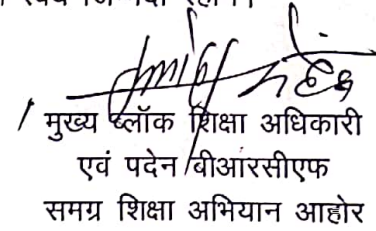 मुख्य ब्लॉक शिक्षा अधिकारी
एवं पदेन बीआरसीएफ
समग्र शिक्षा अभियान आहोर